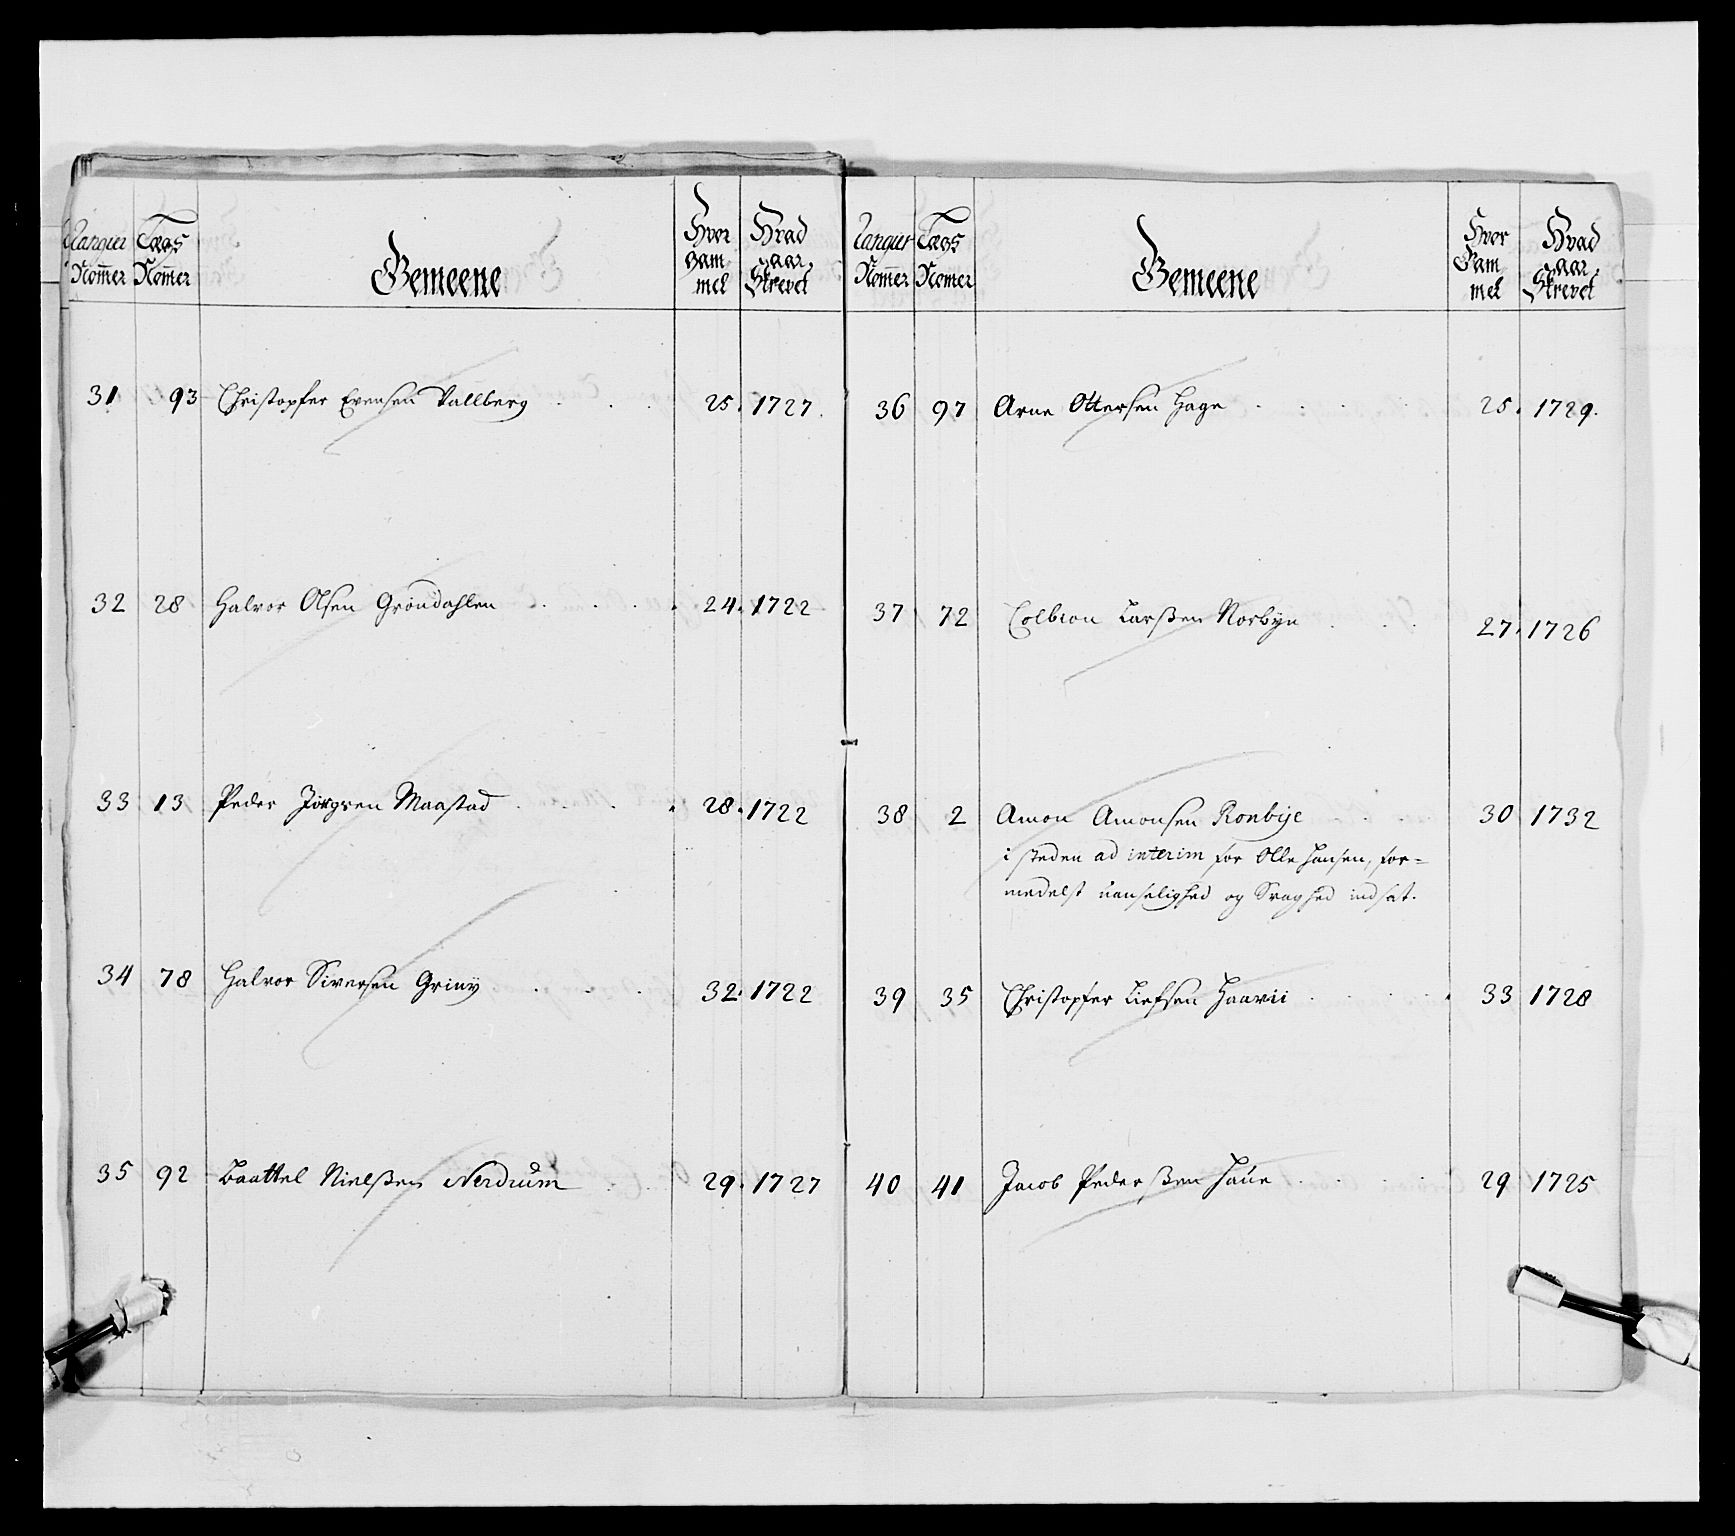 Rangur Nom̄er | Lægs Nom̄er | Gemeene | Hvor Gammel | Hvad aar Skrevet
31 93 Christopfer Evensen Vallberg . . . 25. 1727.
32 28 Halvor Olsen Grøndahlen . . . . 24. 1722
33 13 Peder Jørgsen Maastad . . . . 28. 1722
34 78 Halvor Siversen Griny . . . 32. 1722
35 92 Baattel Nielßen Nerdrum . . 29. 1727
Rangur Nom̄er | Lægs Nomer | Gemeene | Hvor Gammel | Hvad aar Skrevet
36 97 Arne Ottersen Hage . . . . 25. 1729.
37 72 Colbion Larßen Norbye . . . 27. 1726
38 2 Amon Amonsen Ronbye . . . 30 1732
i steden ad interim for Olle Hansen, for=
medelst uanselighed og Svaghed indsat.
39 35 Christopfer Liefsen Haavii . . . . 33 1728
40 41 Jacob Pederßen Haue . . . . 29 1725